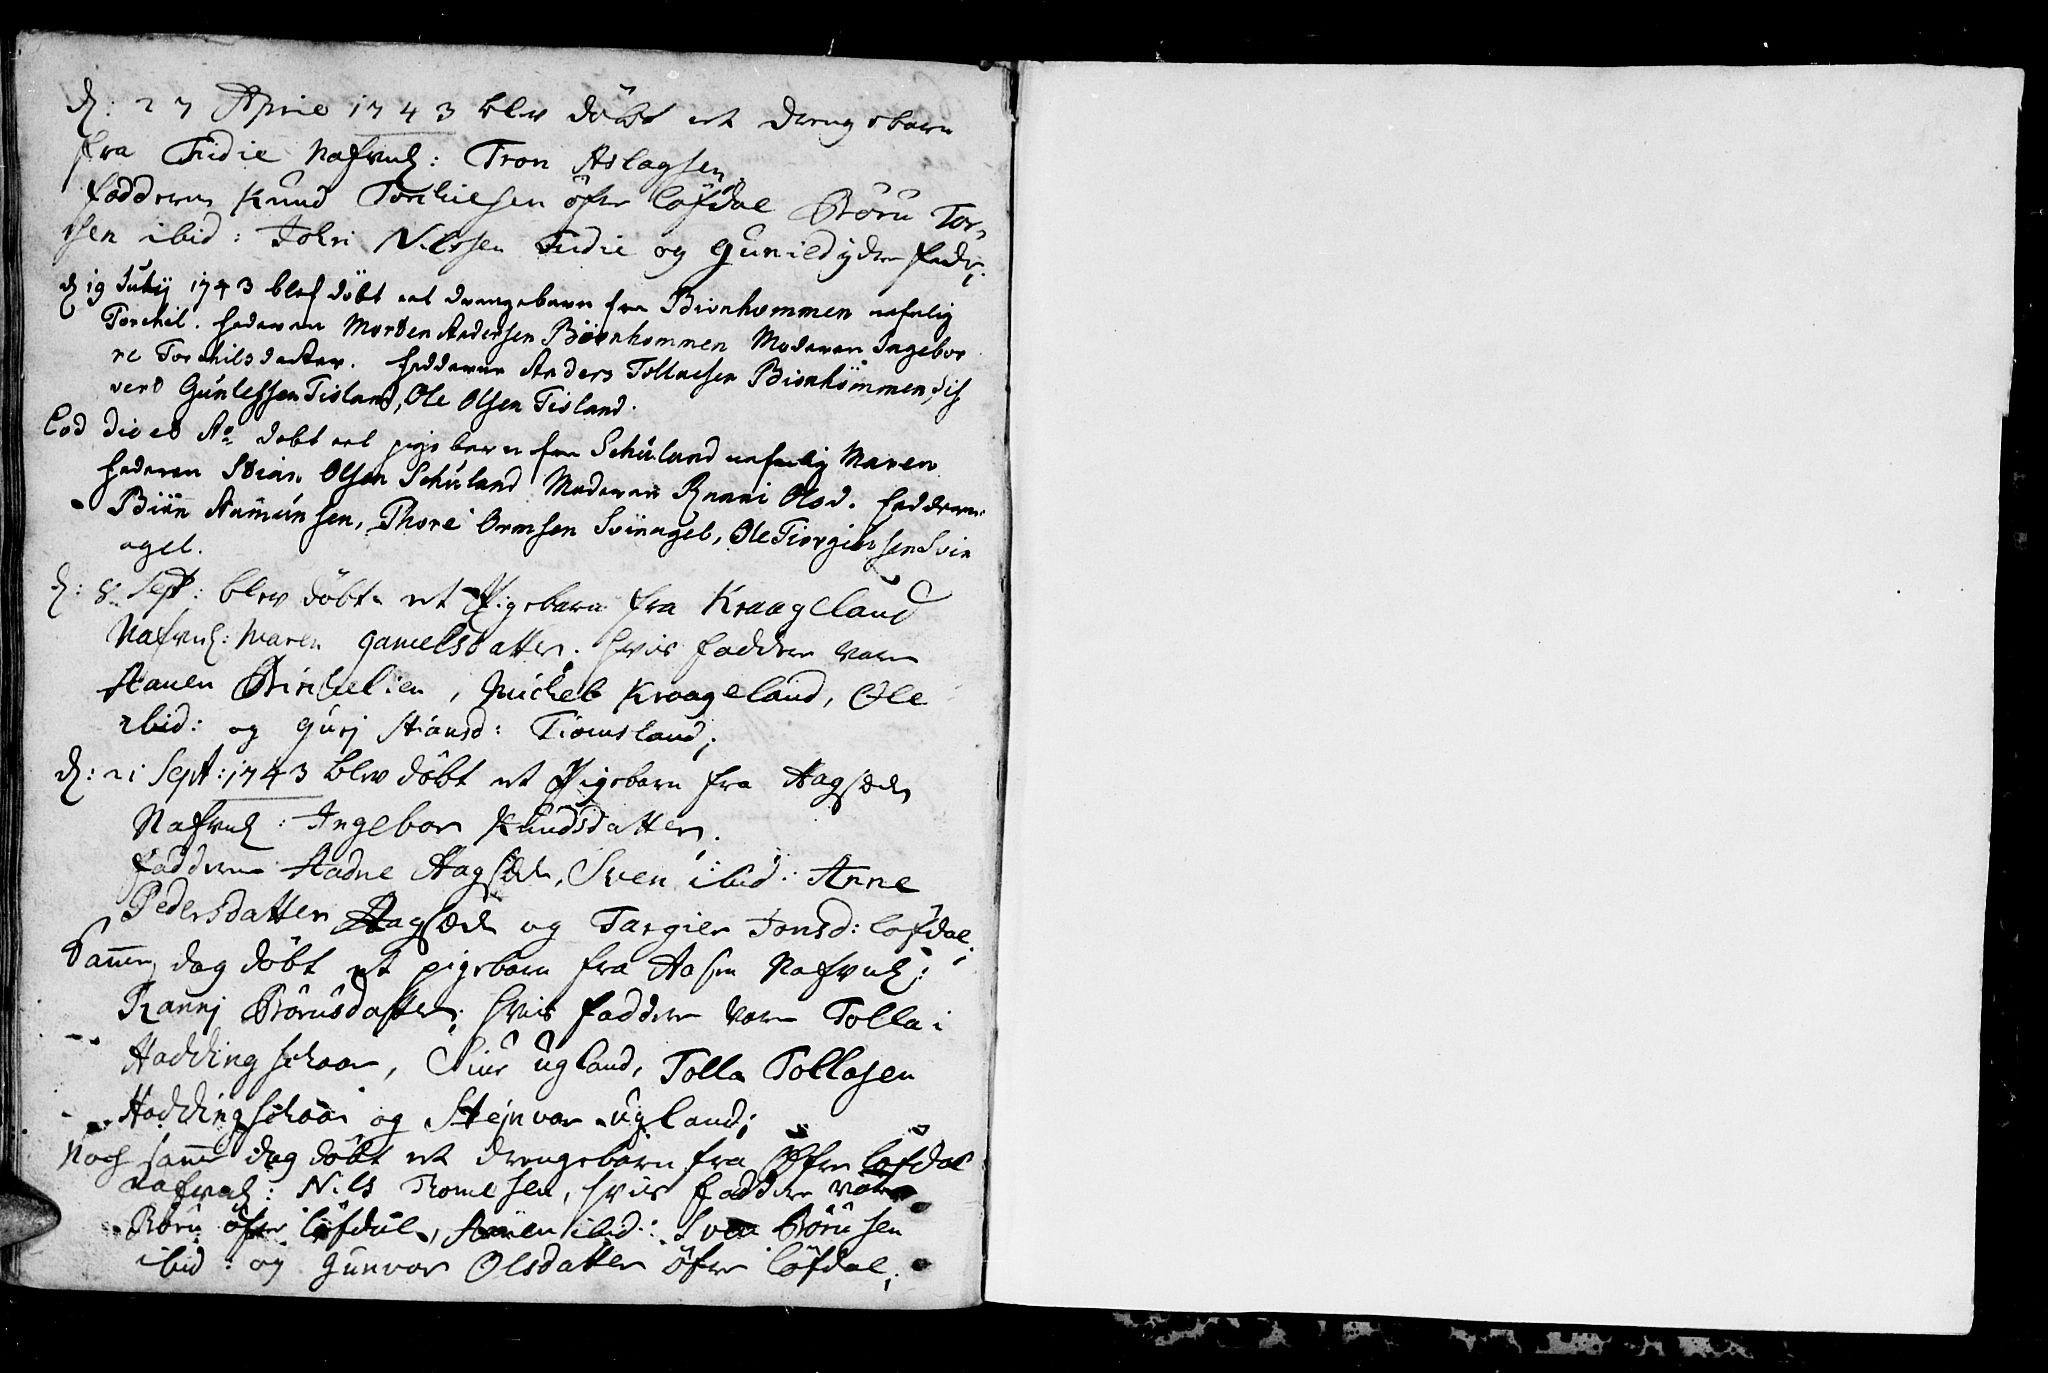 d: 27 April 1743 blev döbt et drengebarn
fra Tudie Nafnl: Tron Aslagsen.
faddere Knud Torchiesen öfre löfdal Böru Tor„
sen ibid: John Nilssen Tudie og Gunild ydre
d 19 July 1743 blef döbt eet drengebarn fra Bionhommen nafnlig
Torchil. faderen Morten Andersen Bionhommen Moderen Ingebor
re Torchilsdatter. faddere Anders Tollaesen Bionhommen, Sif
vert Gunlefsen Tisland, Ole Olsen Tisland.
Eod die et Ao döbt eet pige barn fra Schuland nafnlig Maren
faderen Stian Olsen Schuland Moderen Ranni Olsd. faddere
Biön Aamunsen, Thore Ormsen Svinagel, Ole Tiorgiusen Svin
agel.
d: 8 Sept: blev döbt et Pigebarn fra Kraageland
Nafnl: Maren Gamelsdatter. hvis faddere vare
Aanen Birchelien, Michel Kraageland, Ole
ibid: og Gurj Stiansd: Tiomsland;
d: 21 Sept: 1743 blev döbt et Pigebarn fra Aagsæde
Nafnl: Ingebor Knudsdatter.
faddere Aadne Aagsæde, Sven ibid: Anne
Pedersdatter Aagsæde og Targier Jonsd: löfdal;
Samme dag döbt et pigebarn fra Aasen Nafnl:
Rannj Börusdatter; hvis faddere vare Tolla i
Haddingschaar, Siur Ugland, Tolla Tollasen
Haddingschaar og Stejnvor Ugland;
Noch samme dag döbt et drengebarn fra Öfre löfdal
nafnl: Nils Tromesen, hvis faddere vare
Böru öfre löfdal, Aanen ibid: Sven Börusen
ibid: og Gunvor Olsdatter öfre löfdal;